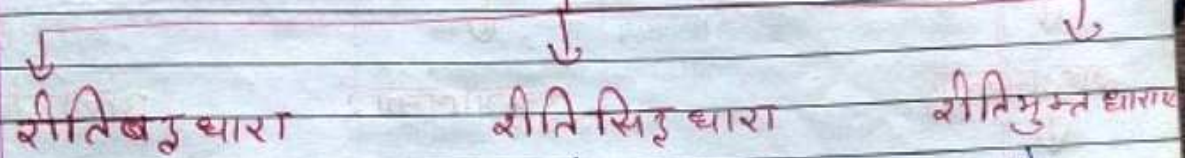 रीतिबद्ध धारा रीतिसिद्ध धारा रीतिमुक्त धाराए